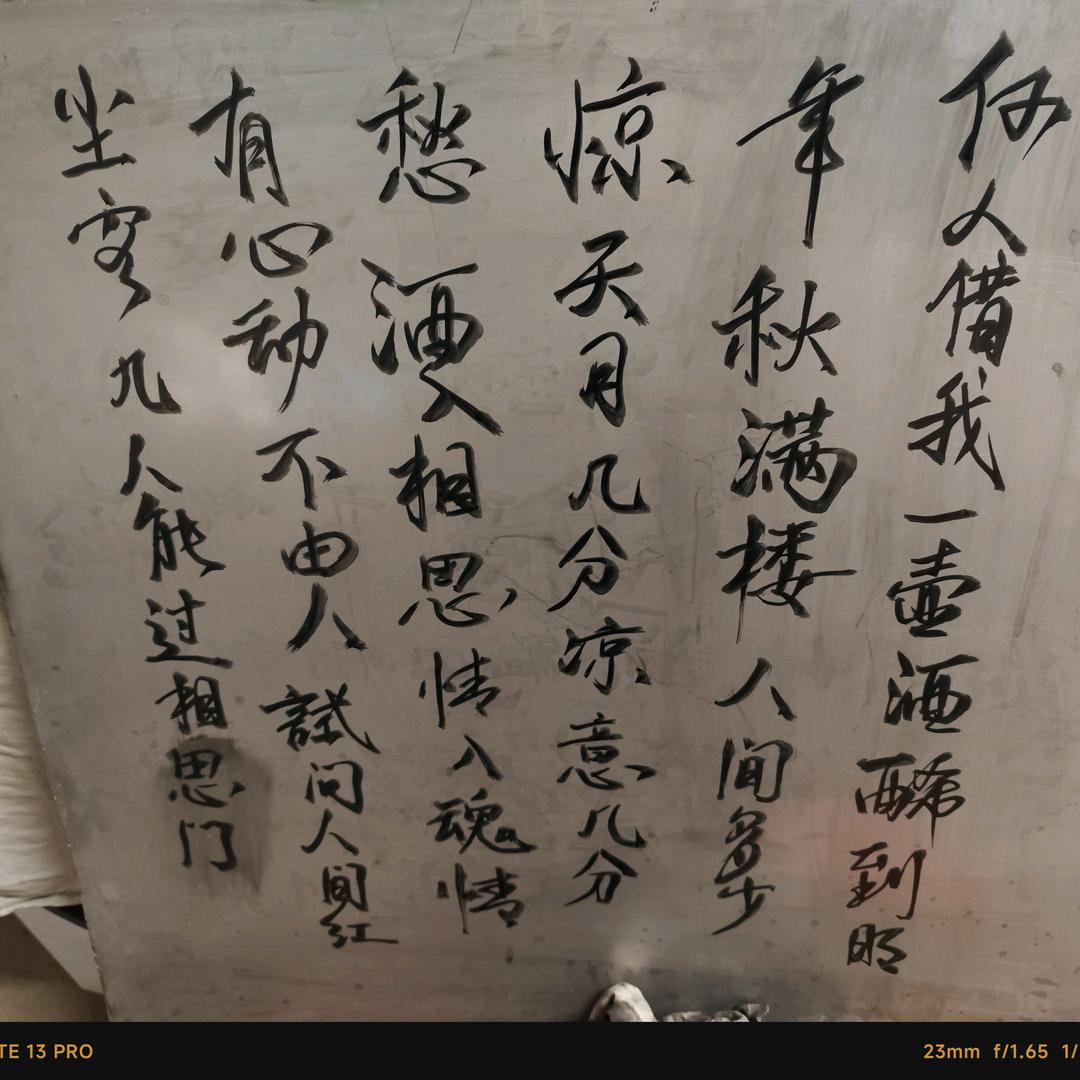 何人借我一壶酒醉到明
年秋满楼人间多少
惊天月几分凉意几分
愁酒入相思情入魂情
有心动不由人試问人间红
尘客几人能过相思门
TE 13 PRO
23mm f/1.65 1/